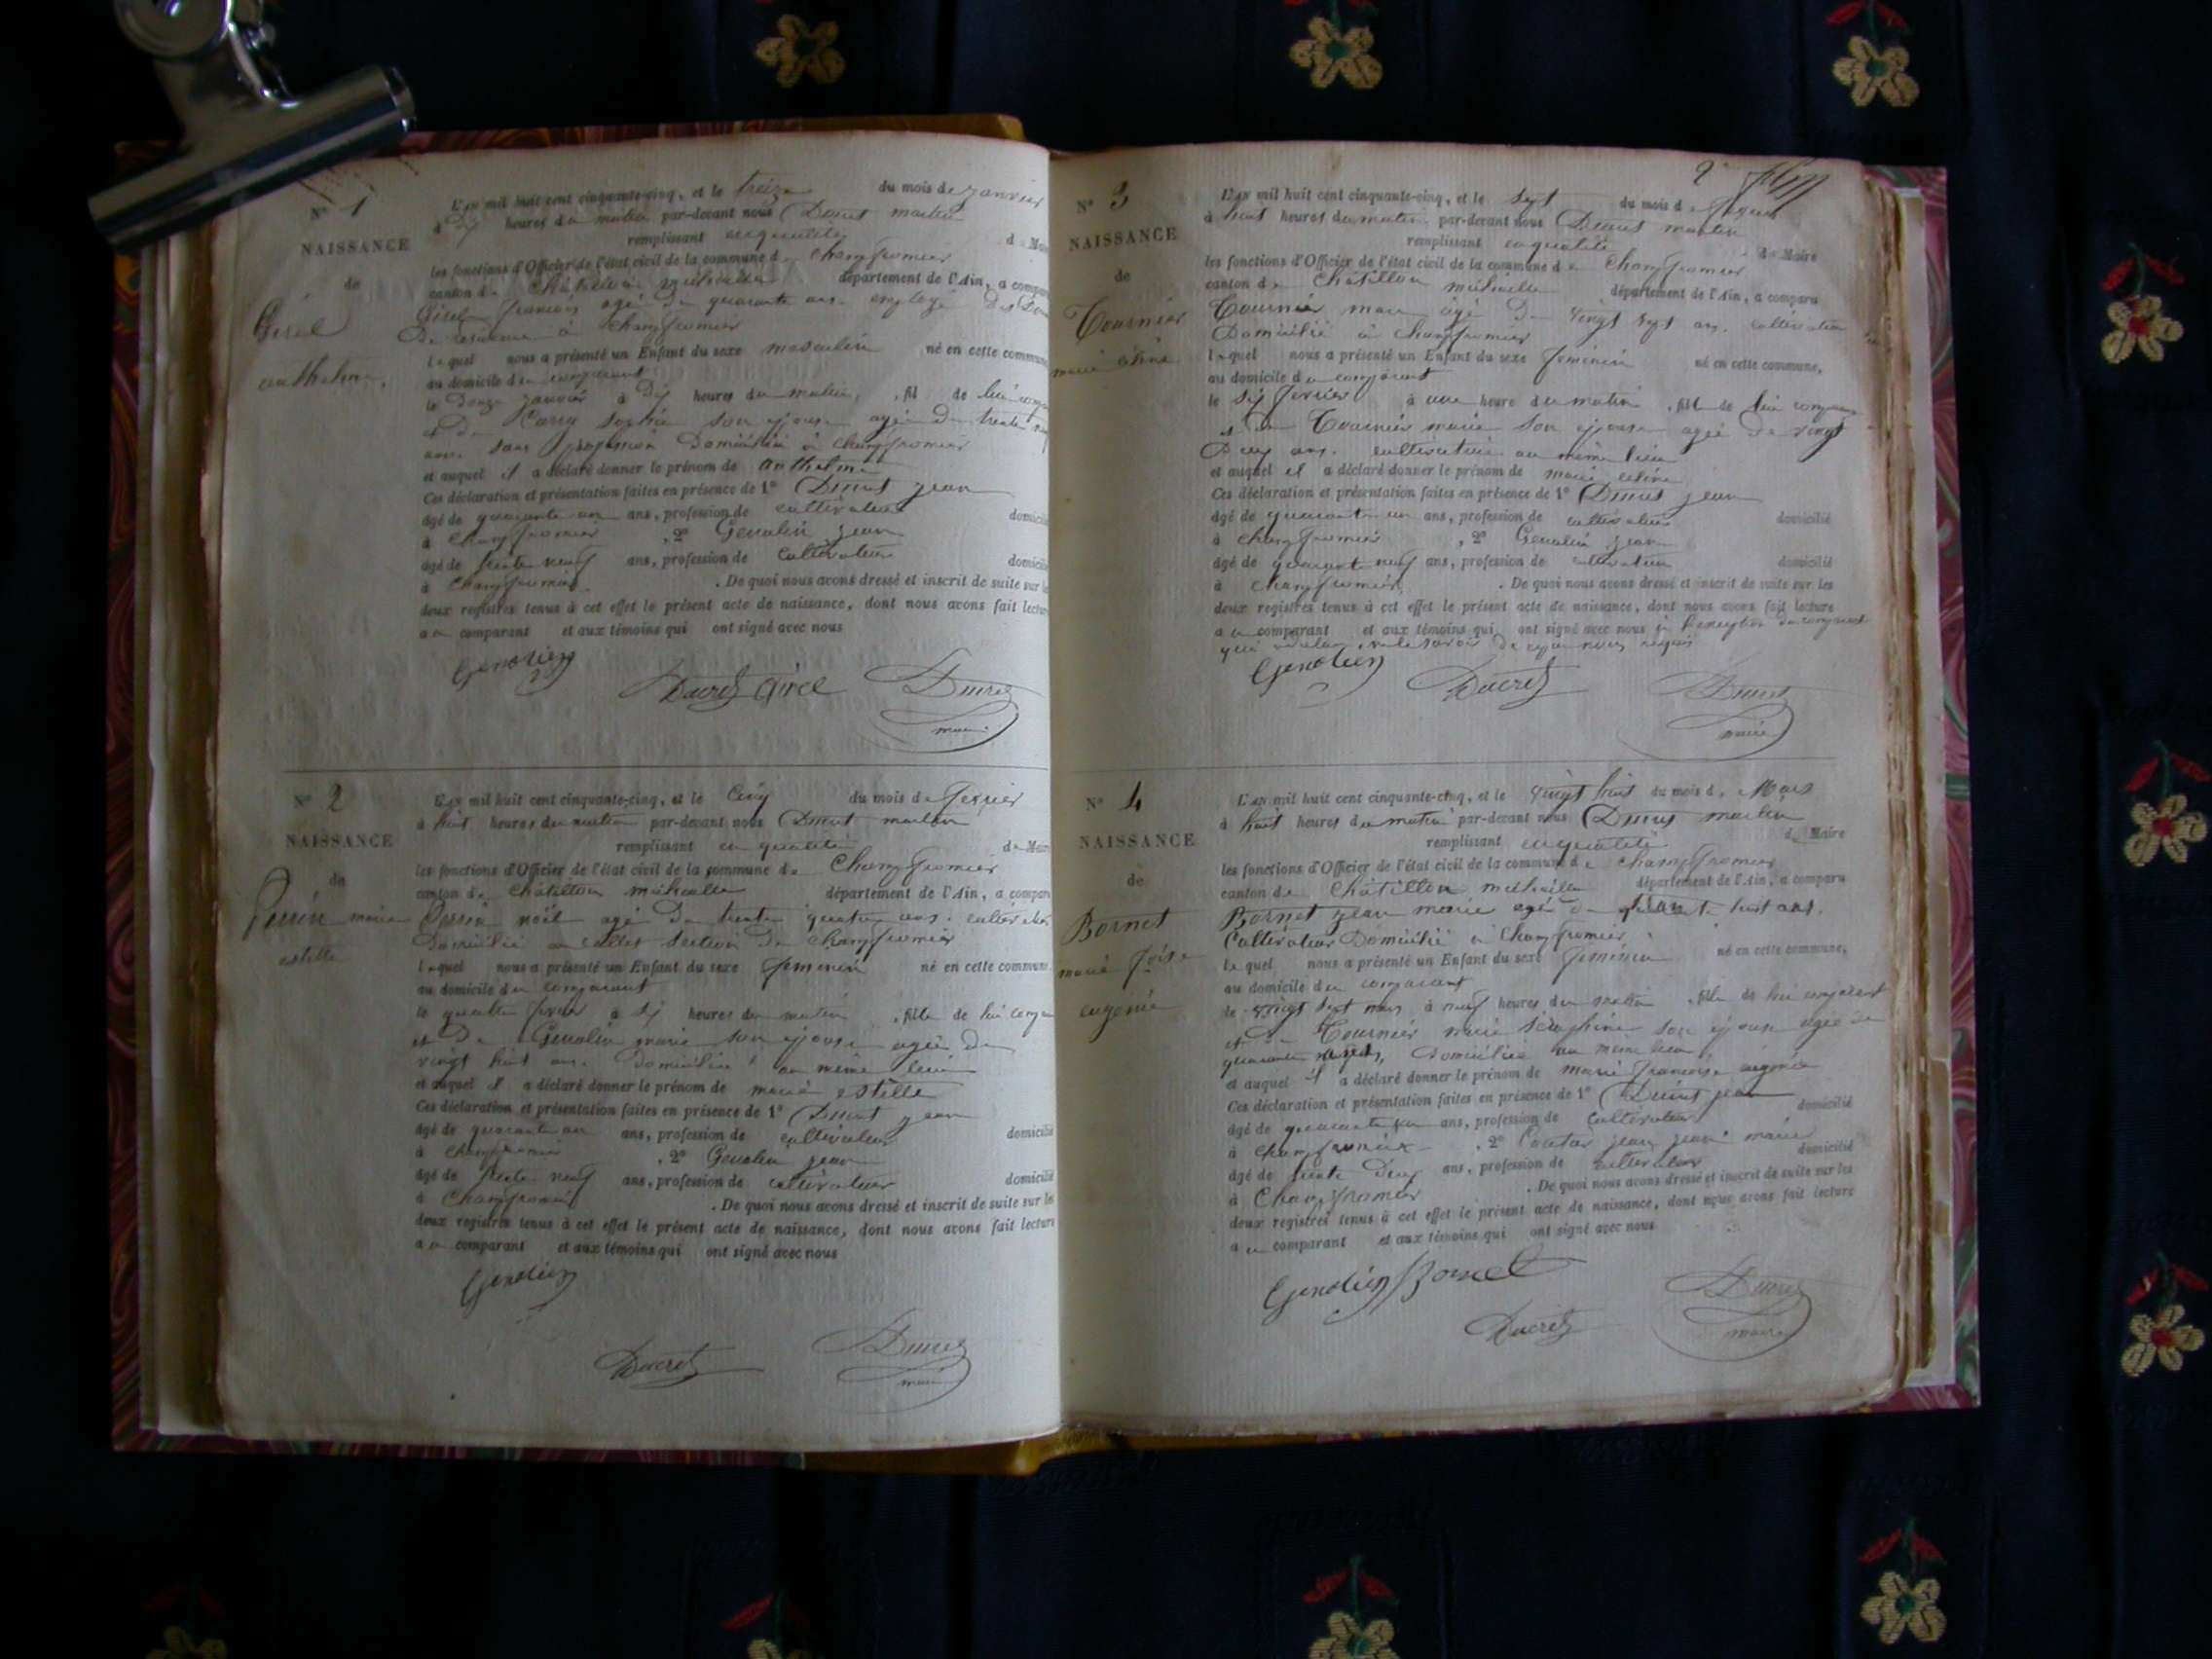 N° 1
NAISSANCE
de
Girel
anthelme.
L'AN mil huit cent cinquante-cinq, et le treize du mois de janvier
à Dix heures du matin par-devant nous Ducret martin
remplissant en qualité de Maire
les fonctions d'Officier de l'état civil de la commune de Champfromier
canton de Châtillon michaille département de l'Ain, a comparu
Girel françois agé de quarante ans employé des
De résidence à Champfromier
lequel nous a présenté un Enfant du sexe masculin né en cette commune
au domicile du comparant
le Douze janvier à Dix heures du matin, fils de lui
et de sophie son epouse agée de trente
ans. sans profession Domiciliée à Champfromier
et auquel il a déclaré donner le prénom de anthelme
Ces déclaration et présentation faites en présence de 1° Ducret jean
âgé de quarante un ans, profession de cultivateur domicilié
à Champfromier, 2° Genolin jean
âgé de trente neuf ans, profession de Cultivateur domicilié
à Champfromier. De quoi nous avons dressé et inscrit de suite sur les
deux registres tenus à cet effet le présent acte de naissance, dont nous avons fait lecture
au comparant et aux témoins qui ont signé avec nous
Genolin
Ducret Girel Ducret
maire
N° 2
NAISSANCE
de
Perrin marie
estelle
L'AN mil huit cent cinquante-cinq, et le Cinq du mois de fevrier
à huit heures du matin par-devant nous Ducret martin
remplissant en qualité de Maire
les fonctions d'Officier de l'état civil de la commune de Champfromier
canton de Châtillon michaille département de l'Ain, a comparu
Perrin noël agé De trente quatre ans. cultivateur
Domicilié au section De Champfromier
lequel nous a présenté un Enfant du sexe feminin né en cette commune
au domicile du comparant
le quatre fevrier à Dix heures du matin, fille de lui
et De Genolin marie son epouse agée De
vingt huit ans. Domiciliée au même lieu
et auquel il a déclaré donner le prénom de marie estelle
Ces déclaration et présentation faites en présence de 1° Ducret jean
âgé de quarante un ans, profession de cultivateur domicilié
à Champfromier, 2° Genolin jean
âgé de trente neuf ans, profession de cultivateur domicilié
à Champfromier. De quoi nous avons dressé et inscrit de suite sur les
deux registres tenus à cet effet le présent acte de naissance, dont nous avons fait lecture
au comparant et aux témoins qui ont signé avec nous
Genolin
Ducret Ducret
maire
2
N° 3
NAISSANCE
de
Tournier
marie céline
L'AN mil huit cent cinquante-cinq, et le Sept du mois de fevrier
à huit heures du matin par-devant nous Ducret martin
remplissant en qualité de Maire
les fonctions d'Officier de l'état civil de la commune de Champfromier
canton de Châtillon michaille département de l'Ain, a comparu
Tournier marie âgé De vingt sept ans. cultivateur
Domicilié à Champfromier
lequel nous a présenté un Enfant du sexe feminin né en cette commune,
au domicile du comparant
le Six fevrier à une heure du matin, fille de lui comparant
et de Tournier marie son epouse agée De vingt
Deux ans. cultivatrice au même lieu
et auquel il a déclaré donner le prénom de marie celine
Ces déclaration et présentation faites en présence de 1° Ducret jean
âgé de quarante un ans, profession de cultivateur domicilié
à Champfromier, 2° Genolin jean
âgé de quarante neuf ans, profession de cultivateur domicilié
à Champfromier. De quoi nous avons dressé et inscrit de suite sur les
deux registres tenus à cet effet le présent acte de naissance, dont nous avons fait lecture
au comparant et aux témoins qui ont signé avec nous à l'exception du comparant
qui a déclaré ne le savoir De ce par nous requis
Genolin Ducret Ducret
maire
N° 4
NAISSANCE
de
Bornet
marie foise
eugenie
L'AN mil huit cent cinquante-cinq, et le vingt huit du mois de Mars
à huit heures du matin par-devant nous Ducret martin
remplissant en qualité de Maire
les fonctions d'Officier de l'état civil de la commune de Champfromier
canton de Châtillon michaille département de l'Ain, a comparu
Bornet jean marie agé de quarante huit ans.
Cultivateur Domicilié à Champfromier
lequel nous a présenté un Enfant du sexe feminin né en cette commune,
au domicile du comparant
le vingt sept mars à neuf heures du matin, fille de lui comparant
et de Tournier marie séraphine son epouse agée de
quarante Domiciliée au même lieu
et auquel il a déclaré donner le prénom de marie françoise eugenie
Ces déclaration et présentation faites en présence de 1° Ducret jean
âgé de quarante un ans, profession de cultivateur domicilié
à Champfromier, 2° jean marie
âgé de trente Deux ans, profession de cultivateur domicilié
à Champfromier. De quoi nous avons dressé et inscrit de suite sur les
deux registres tenus à cet effet le présent acte de naissance, dont nous avons fait lecture
au comparant et aux témoins qui ont signé avec nous
Genolin Bornet
Ducret Ducret
maire